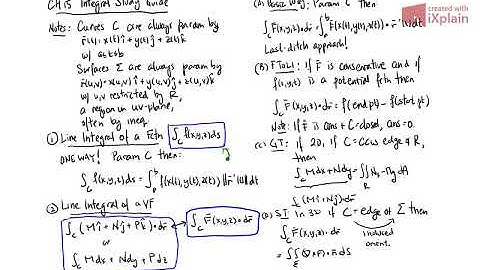 CH15 Integral Study Guide
Notes: Curves C are always param by
r̄(t) = x(t)î + y(t)ĵ + z(t)k̂
w/ a≤t≤b
Surfaces Σ are always param by
r̄(u,v) = x(u,v)î + y(u,v)ĵ + z(u,v)k̂
w/ u,v restricted by R,
a region in uv-plane,
often by ineq.
① Line Integral of a Fctn ∫_C f(x,y,z) ds
ONE WAY! Param C then:
∫_C f(x,y,z) ds = ∫_a^b f(x(t),y(t),z(t)) ||r̄'(t)|| dt
② Line Integral of a VF
∫_C (Mî + Nĵ + Pk̂) • dr̄
or
∫_C M dx + N dy + P dz
∫_C F̄(x,y,z) • dr̄
(A) Basic Way: Param C Then
∫_C F̄(x,y,z) • dr̄ = ∫_a^b F̄(x(t),y(t),z(t)) • r̄'(t) dt
Last-ditch approach!
(B) FTOLI: if F̄ is conservative and if
f(x,y,z) is a potential fctn then
∫_C F̄(x,y,z) • dr̄ = f(end pt) - f(start pt)
Note: If F̄ is cons + C=closed, ans=0.
(C) GT: if 2D, if C = ccw edge of R,
then
∫_C M dx + N dy = ∫∫_R N_x - M_y dA
∫_C (Mî + Nĵ) • dr̄
(D) ST in 3D if C = edge of Σ then
∫_C F̄(x,y,z) • dr̄
induced
orient.
= ∫∫_Σ (∇×F̄) • n̄ dS
created with
iXplain